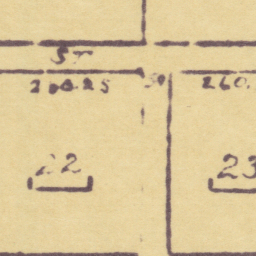 ST
200.25 50 260.
22 23